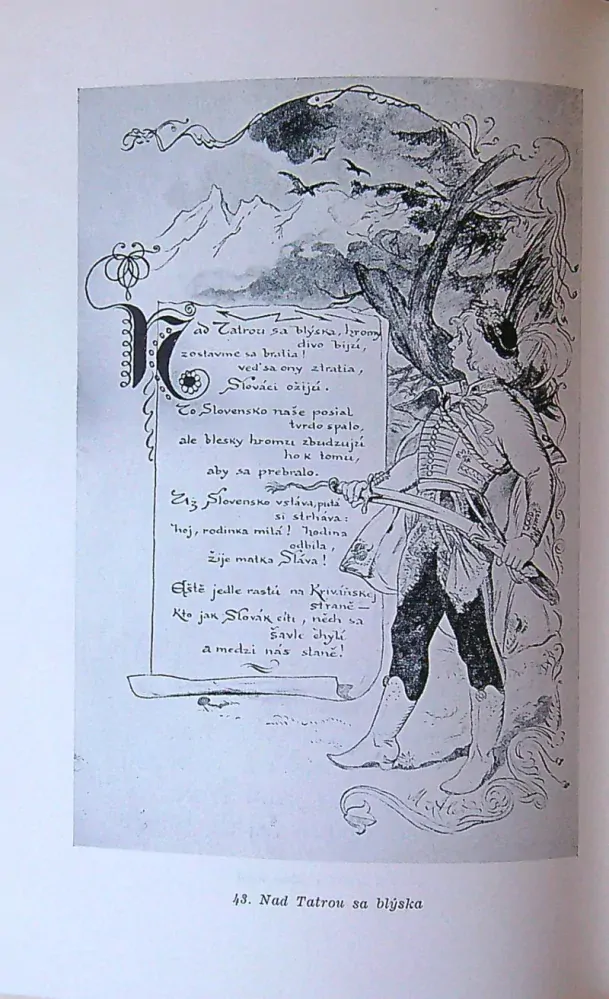 Nad Tatrou sa blýska, hromy
divo bijú,
zostavme sa bratia!
veď sa ony ztratia,
Slováci ožijú.
To Slovensko naše posial
tvrdo spalo,
ale blesky hromu zbudzujú
ho k tomu,
aby sa prebralo.
Už Slovensko vstáva, putá
si strháva:
hej, rodinka milá! hodina
odbila,
žije matka Sláva!
Ešte jedle rastú na Kriváňskej
straně —
Kto jak Slovák cíti, něch sa
šavle chytí
a medzi nás staně!
43. Nad Tatrou sa blýska